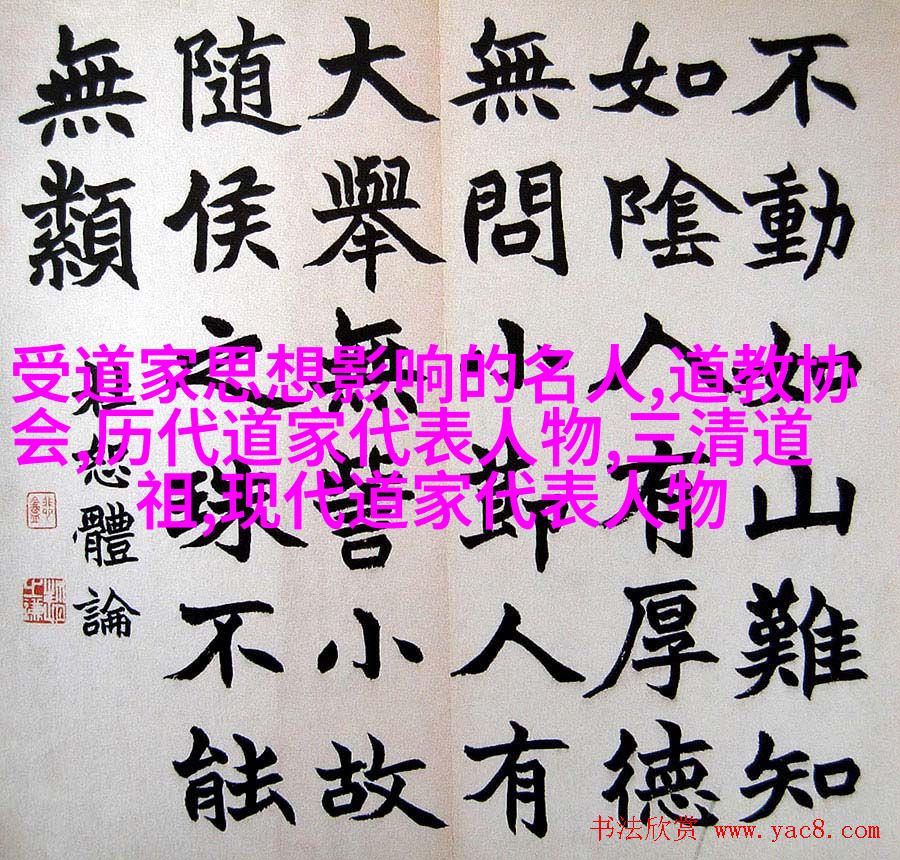 不動如山難知
如陰人有厚德
無問小節人有
大舉無訾小故
隨侯之珠不能
無纇
恕體論
受道家思想影响的名人,道教协
会,历代道家代表人物,三清道
祖,现代道家代表人物
书法欣赏 www.yac8.com